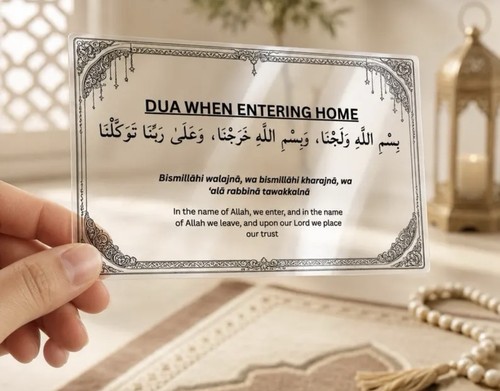 DUA WHEN ENTERING HOME
بِسْمِ اللَّهِ وَلَجْنَا، وَبِسْمِ اللَّهِ خَرَجْنَا، وَعَلَىٰ رَبِّنَا تَوَكَّلْنَا
Bismillāhi walajnā, wa bismillāhi kharajnā, wa
‘alā rabbinā tawakkalnā
In the name of Allah, we enter, and in the name
of Allah we leave, and upon our Lord we place
our trust